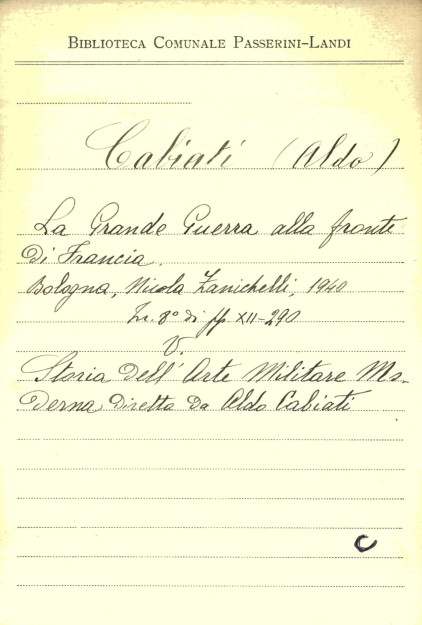 BIBLIOTECA COMUNALE PASSERINI-LANDI
Cabiati (Aldo)
La Grande Guerra alla fronte
di Francia.
Bologna, Nicola Zanichelli, 1940
In. 8º di pp XII-290
V.
Storia dell'Arte Militare Mo-
derna diretta da Aldo Cabiati
C